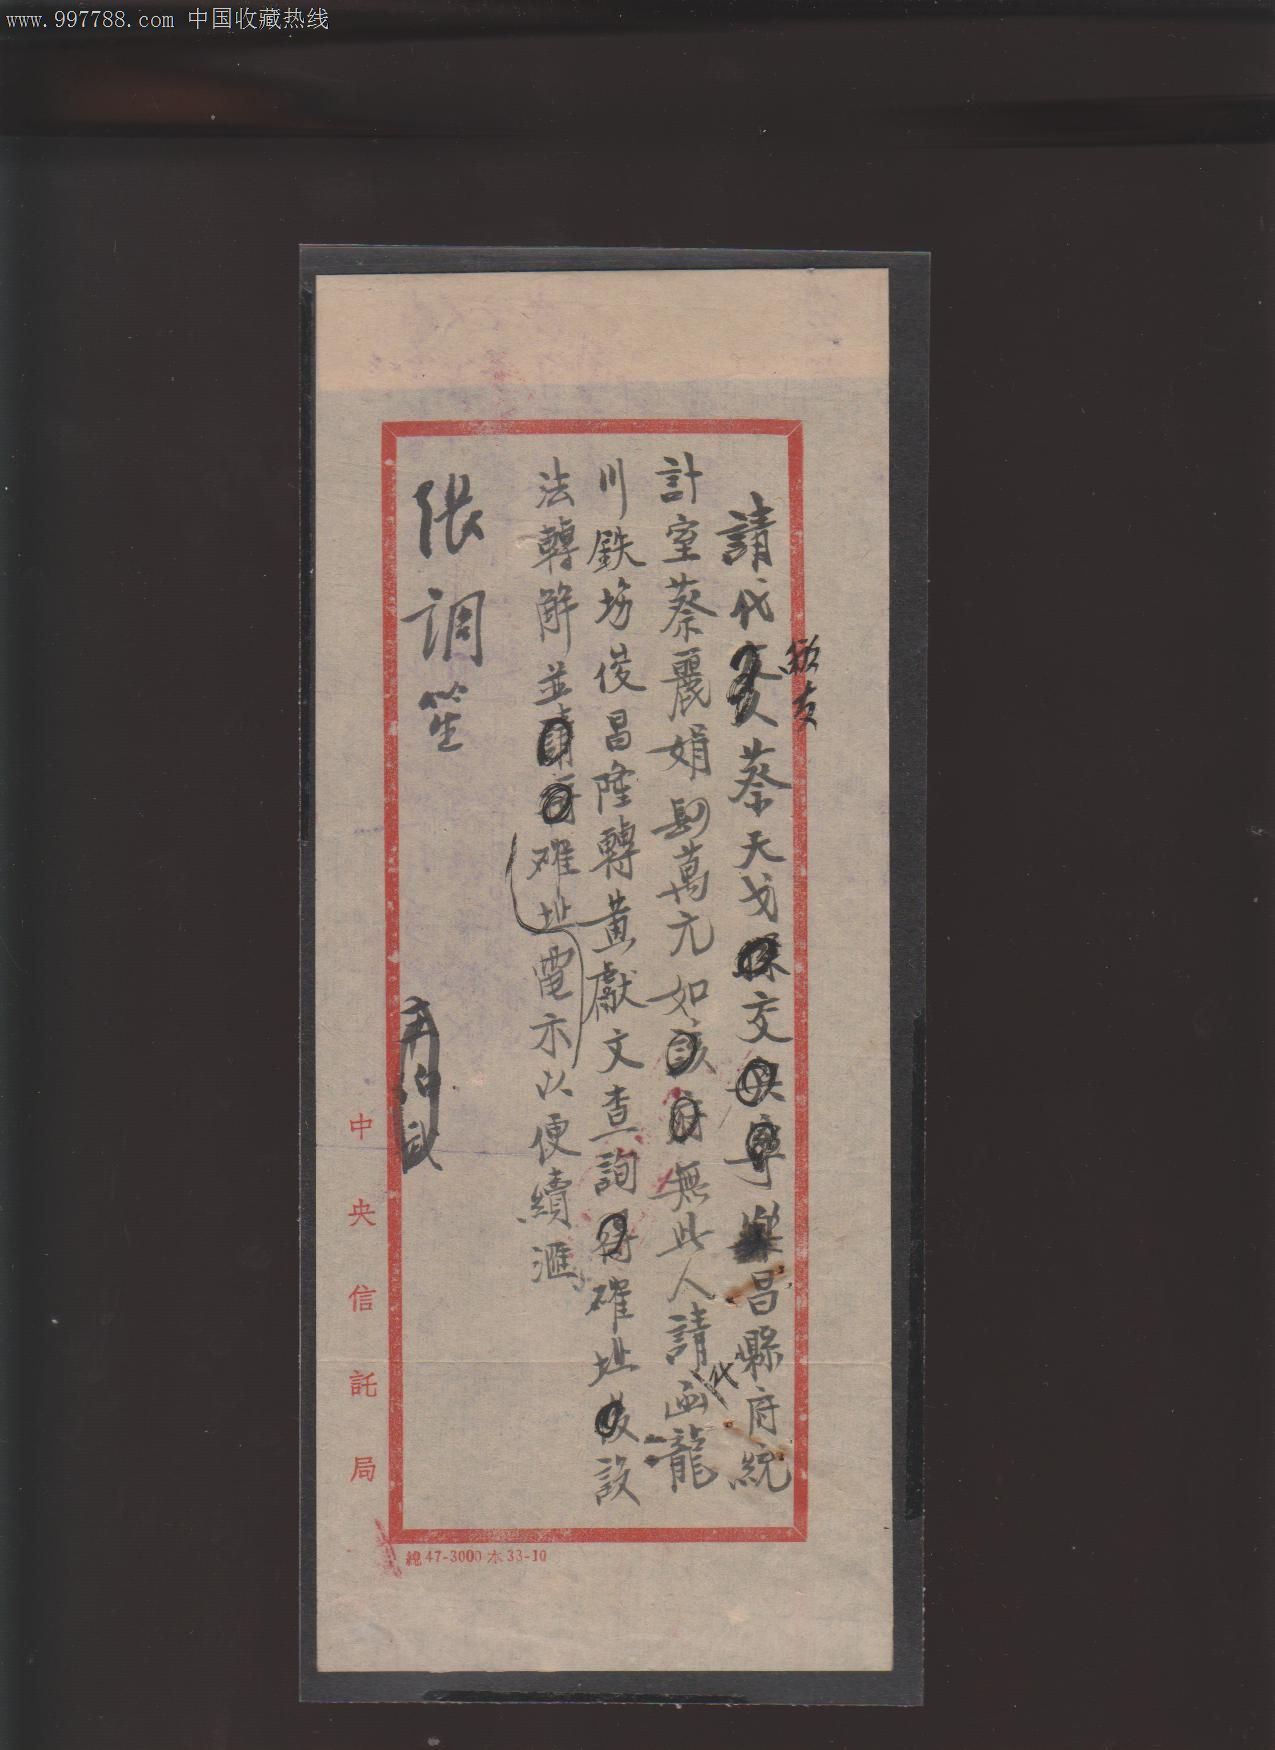 www.997788.com 中国收藏热线
請代蔡天戈交樂昌縣府統
計室蔡麗娟萬元如無此人請代函龍
川鉄塲俊昌隆轉黄獻文查詢確址設
法轉解並确址電示以便續滙
張調笙
中央信託局
總 47-3000 本 33-10